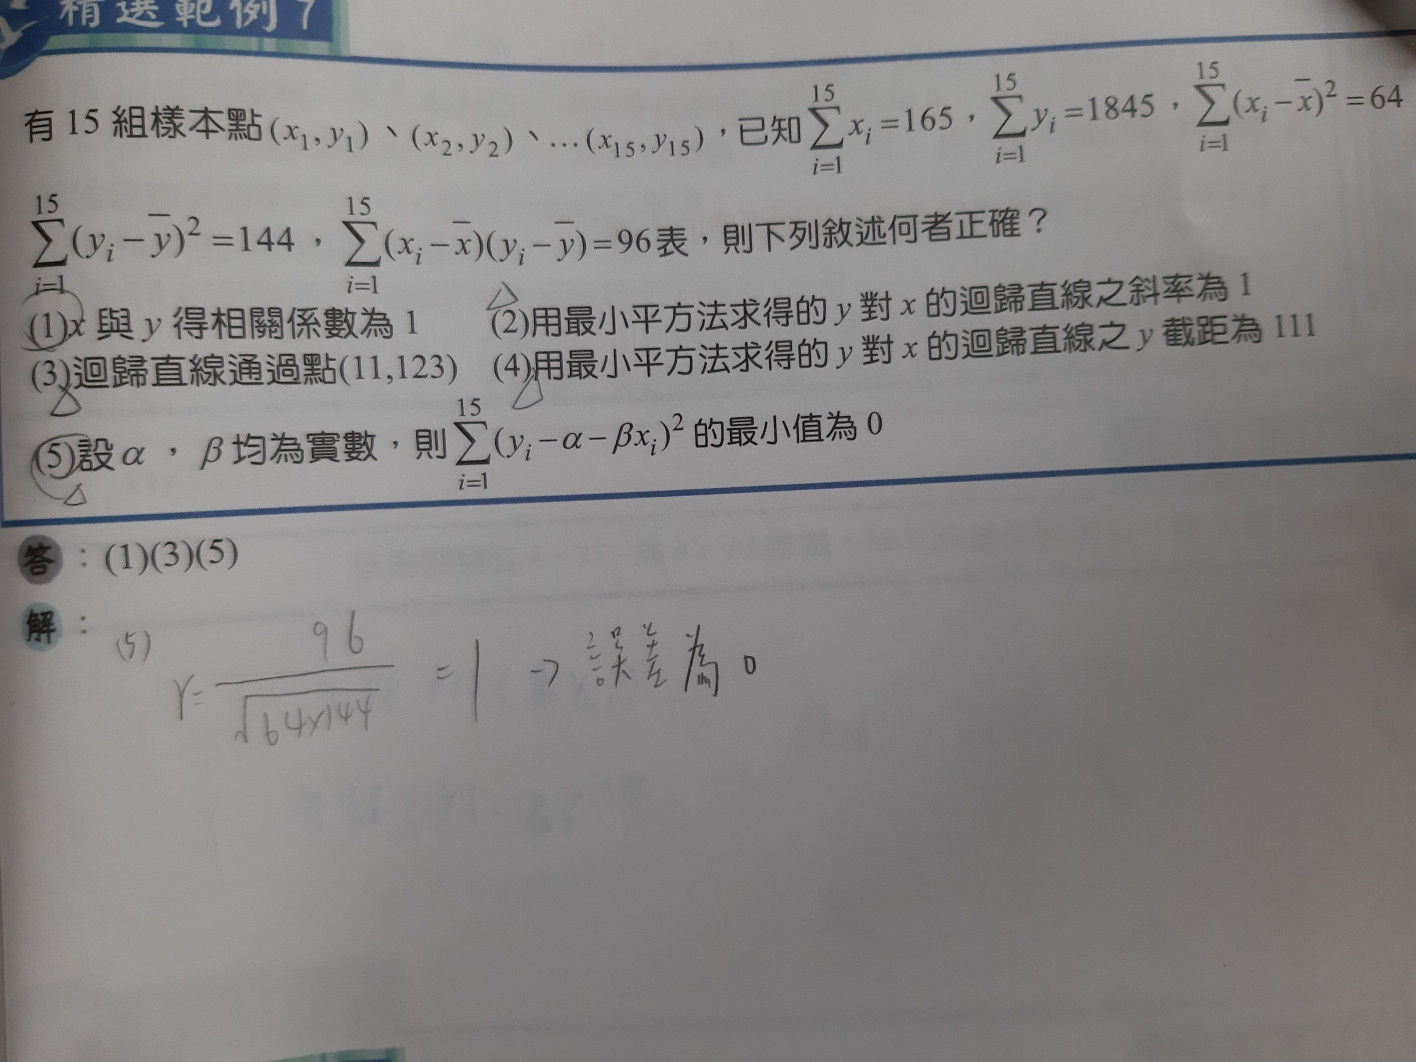 精選範例 7
有 15 組樣本點(x₁, y₁)、(x₂, y₂)、…(x₁₅, y₁₅),已知 ∑_{i=1}^{15} xᵢ=165,∑_{i=1}^{15} yᵢ=1845,∑_{i=1}^{15} (xᵢ−x̄)²=64
∑_{i=1}^{15} (yᵢ−ȳ)²=144,∑_{i=1}^{15} (xᵢ−x̄)(yᵢ−ȳ)=96表,則下列敘述何者正確?
(1)x 與 y 得相關係數為 1 (2)用最小平方法求得的 y 對 x 的迴歸直線之斜率為 1
(3)迴歸直線通過點(11,123) (4)用最小平方法求得的 y 對 x 的迴歸直線之 y 截距為 111
(5)設 α , β 均為實數,則 ∑_{i=1}^{15} (yᵢ−α−βxᵢ)² 的最小值為 0
答:(1)(3)(5)
解:
(5) r= 96/√(64×144) = 1 → 誤差為 0